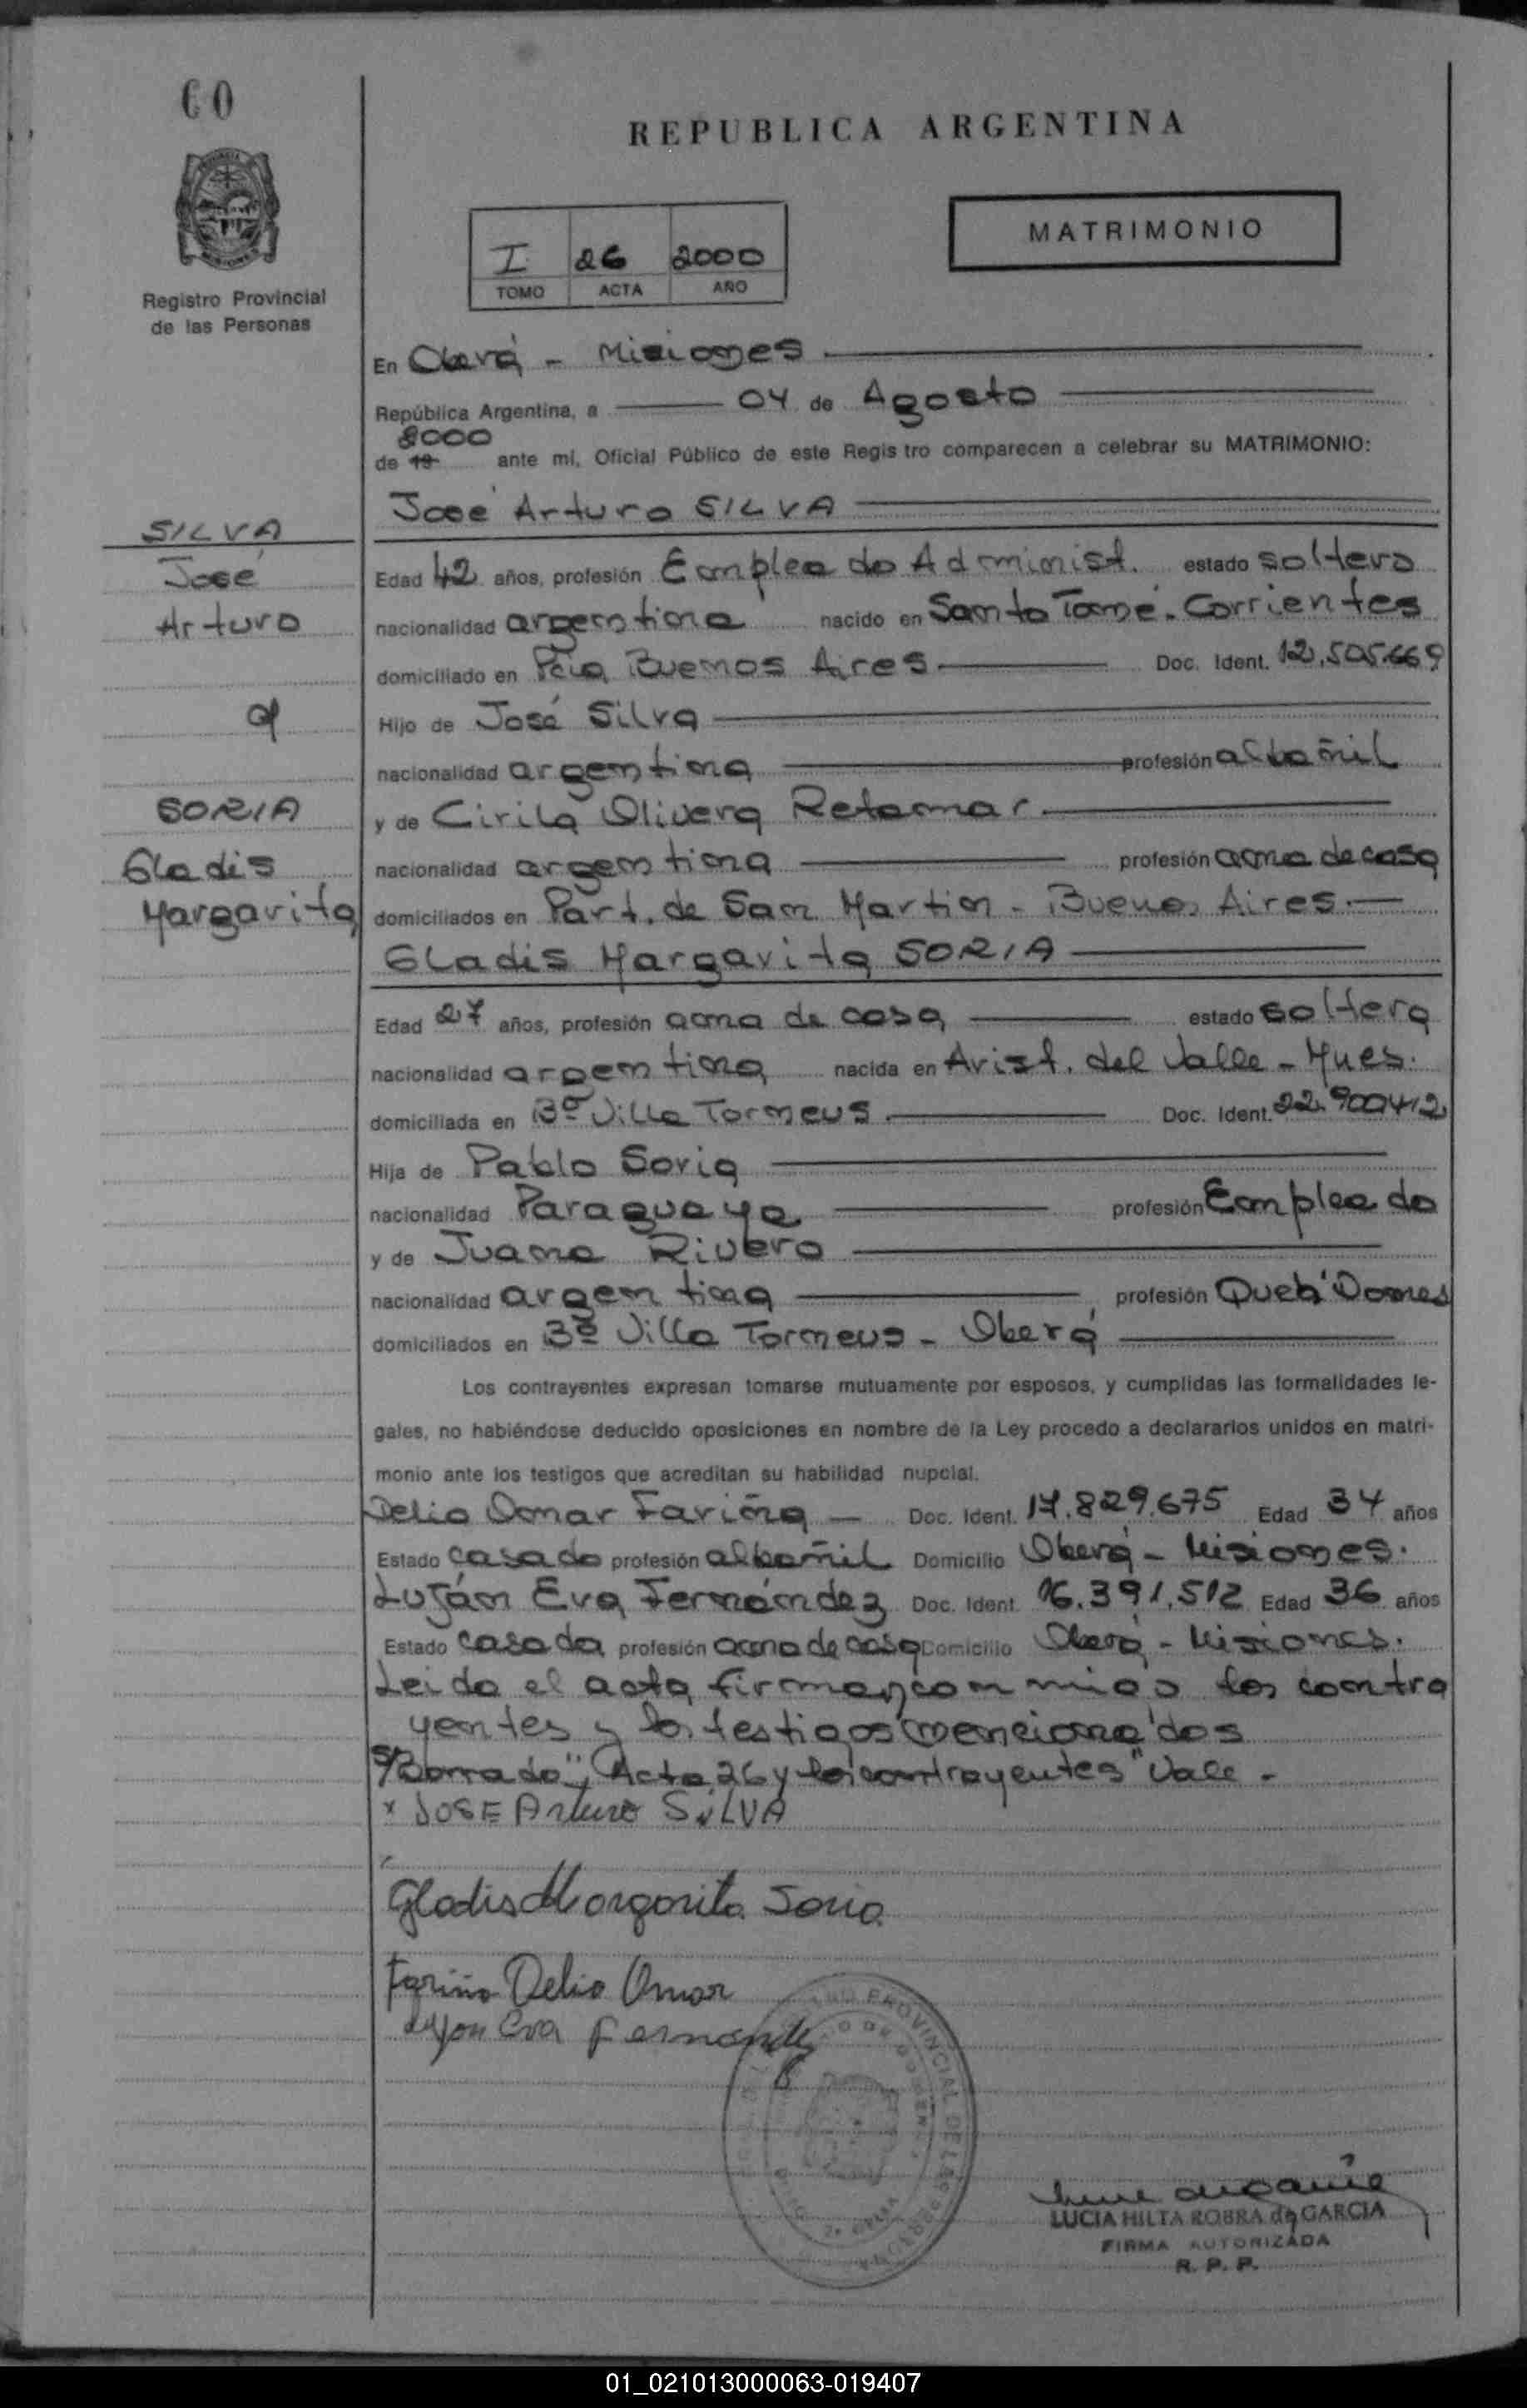 60
REPUBLICA ARGENTINA
MATRIMONIO
I 26 2000
TOMO ACTA AÑO
Registro Provincial
de las Personas
En Oberá - Misiones
República Argentina, a 04 de Agosto
2000
de 19 ante mi, Oficial Público de este Regis tro comparecen a celebrar su MATRIMONIO:
José Arturo SILVA
SILVA
José
Arturo
Edad 42 años, profesión Empleado Administ. estado soltero
nacionalidad argentina nacido en Santo Tomé - Corrientes
domiciliado en Pcia Buenos Aires Doc. Ident. 12.505.669
Hijo de José Silva
nacionalidad argentina profesión albañil
y de Cirila Olivera Retamar
nacionalidad argentina profesión ama de casa
domiciliados en Part. de San Martin - Buenos Aires.
SORIA
Gladis
Margarita
Gladis Margarita SORIA
Edad 27 años, profesión ama de casa estado soltera
nacionalidad argentina nacida en Arist. del Valle - Mnes.
domiciliada en Bº Villa Tormeus Doc. Ident.
Hija de Pablo Soria
nacionalidad Paraguaya profesión Empleado
y de Juana Rivero
nacionalidad argentina profesión Queh' Domes
domiciliados en Bº Villa Tormeus - Oberá
Los contrayentes expresan tomarse mutuamente por esposos, y cumplidas las formalidades le-
gales, no habiéndose deducido oposiciones en nombre de la Ley procedo a declararlos unidos en matri-
monio ante los testigos que acreditan su habilidad nupcial.
Delio Omar Fariña Doc. Ident. 17.829.675 Edad 34 años
Estado casado profesión albañil Domicilio Oberá - Misiones.
Luján Eva Fernández Doc. Ident. 16.391.512 Edad 36 años
Estado casada profesión ama de casa Domicilio Oberá - Misiones.
Leida el acta firman conmigo los contra
yentes y los testigos mencionados
S/Borrado", Acta 26 y los contrayentes" Vale -
x JOSE Arturo SiLVA
Gladis Margarita Soria
Fariña Delio Omar
Lujan Eva Fernandez
PROVINCIAL DE LAS PERSONAS
LUCIA HILTA ROBRA de GARCIA
FIRMA AUTORIZADA
R. P. P.
01_021013000063-019407